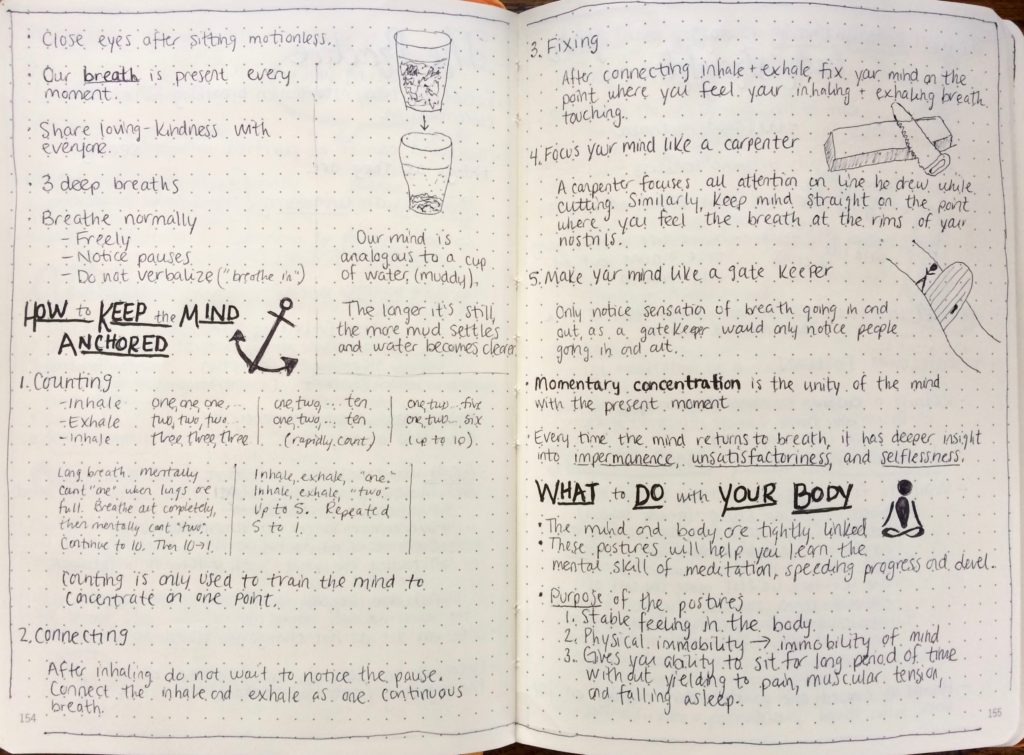 • Close eyes after sitting motionless.
• Our breath is present every
moment.
• Share loving-kindness with
everyone.
• 3 deep breaths
• Breathe normally
- Freely
- Notice pauses
- Do not verbalize ("breathe in")
Our mind is
analogous to a cup
of water (muddy).
The longer it's still,
the more mud settles
and water becomes clearer
HOW to KEEP the MIND
ANCHORED
1. Counting
- Inhale one, one, one, ... one, two, ... ten one, two ... five
- Exhale two, two, two ... one, two, ... ten one, two ... six
- Inhale three, three, three (rapidly count) (up to 10).
Long breath. mentally
count "one" when lungs are
full. Breathe out completely,
then mentally count "two".
Continue to 10. Then 10→1.
Inhale, exhale, "one."
Inhale, exhale, "two."
Up to 5. Repeated
5 to 1.
Counting is only used to train the mind to
concentrate on one point.
2. Connecting
After inhaling do not wait to notice the pause.
Connect the inhale and exhale as one continuous
breath.
154
3. Fixing
After connecting inhale + exhale, fix your mind on the
point where you feel your inhaling + exhaling breath
touching.
4. Focus your mind like a carpenter
A carpenter focuses all attention on line he drew while
cutting. Similarly, keep mind straight on the point
where you feel the breath at the rims of your
nostrils.
5. Make your mind like a gate keeper
Only notice sensation of breath going in and
out, as a gatekeeper would only notice people
going in and out.
• Momentary concentration is the unity of the mind
with the present moment
• Every time the mind returns to breath, it has deeper insight
into impermanence, unsatisfactoriness, and selflessness.
WHAT to DO with YOUR BODY
• The mind and body are tightly linked
• These postures will help you learn the
mental skill of meditation, speeding progress and devel.
• Purpose of the postures
1. Stable feeling in the body.
2. Physical immobility → immobility of mind
3. Gives you ability to sit for long period of time
without yielding to pain, muscular tension,
and falling asleep.
155